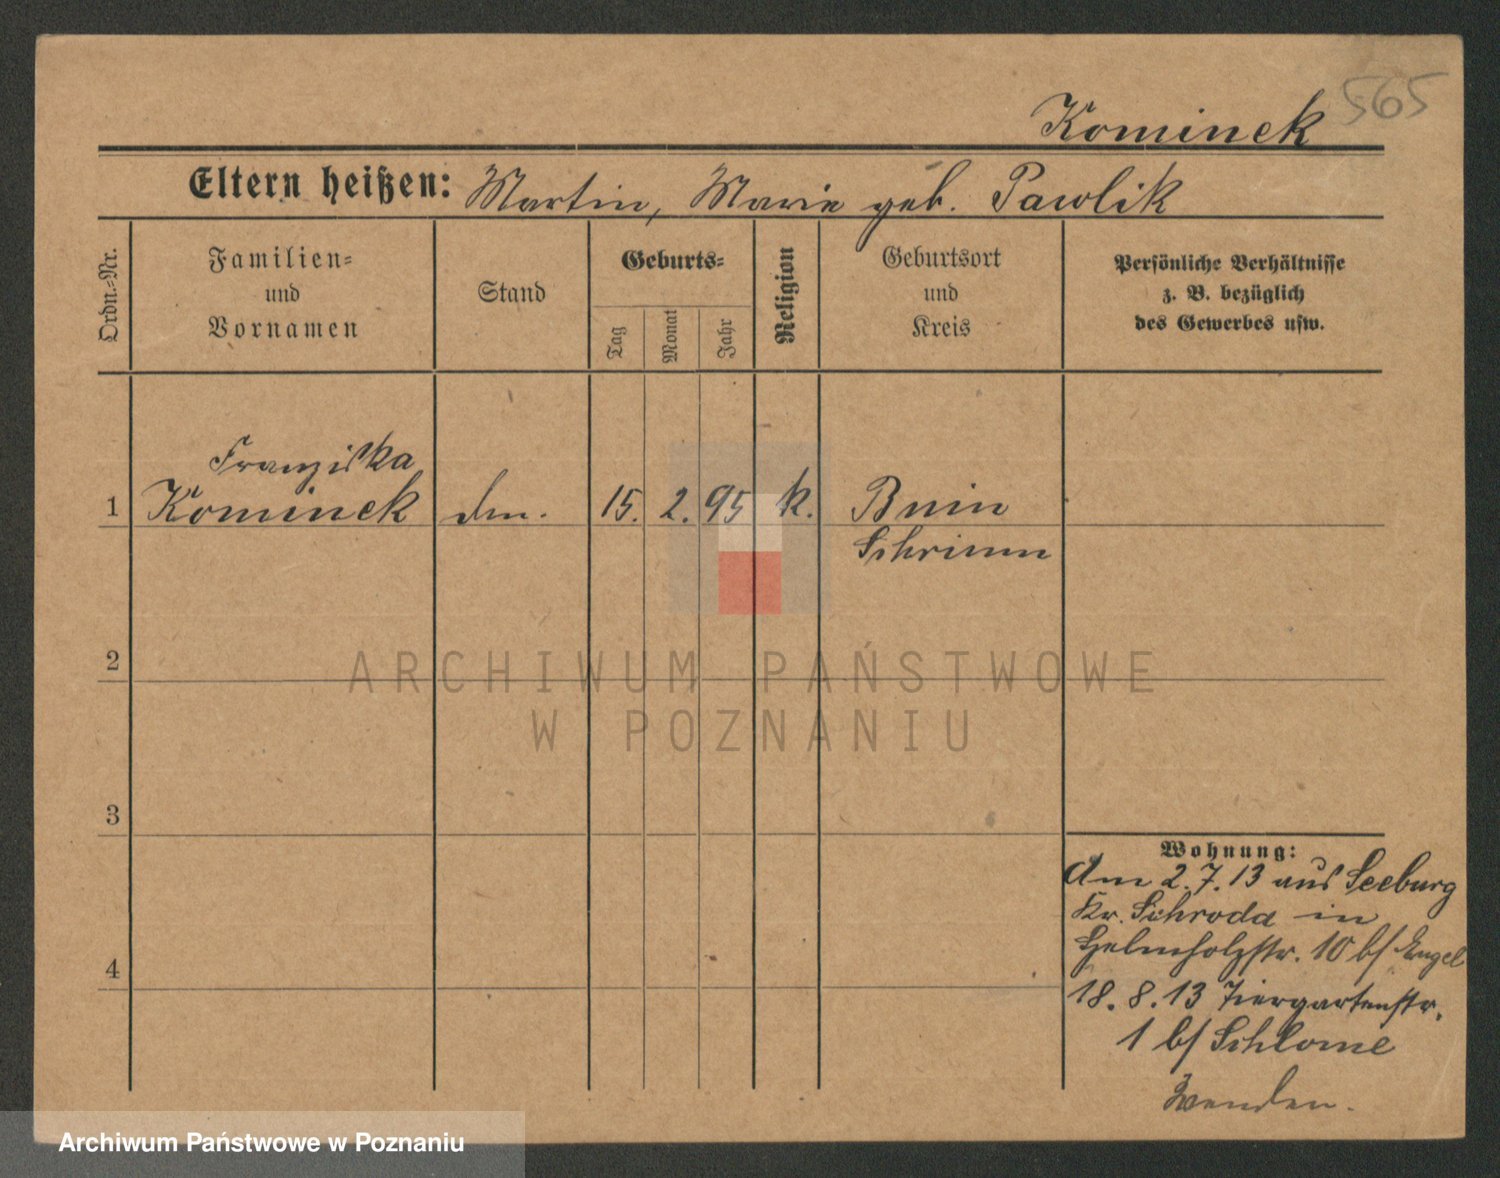 565
Kominek
Eltern heißen: Martin, Marie geb. Pawlik
Ordn.=Nr.
Familien=
und
Vornamen
Stand
Geburts=
Tag
Monat
Jahr
Religion
Geburtsort
und
Kreis
Persönliche Verhältnisse
z. B. bezüglich
des Gewerbes usw.
Franziska
1 Kominek 15. 2. 95 k. Bnin
Schrimm
2
3
4
Wohnung:
Am 2.7.13 aus Seeburg
Kr. Schroda in
Helmholzstr. 10 b/ Engel
18.8.13 Tiergartenstr.
1 b/ Schlome
Wenden.
ARCHIWUM PAŃSTWOWE
W POZNANIU
Archiwum Państwowe w Poznaniu